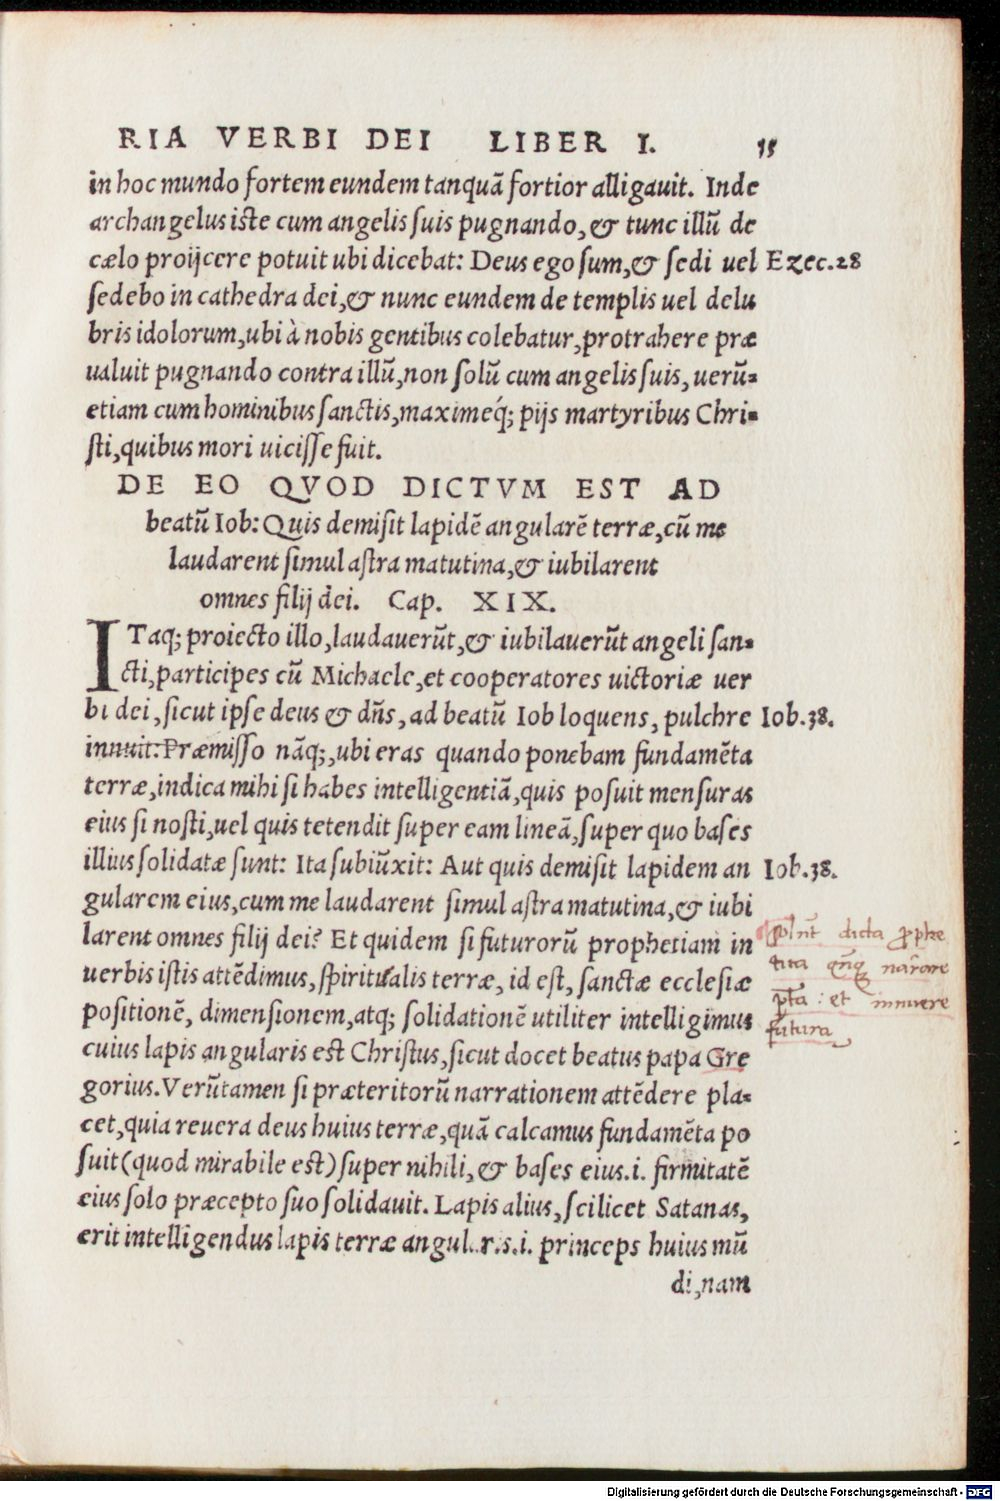 RIA VERBI DEI LIBER I. 15
in hoc mundo fortem eundem tanquā fortior alligauit. Inde
archangelus iste cum angelis suis pugnando, & tunc illū de
cælo proijcere potuit ubi dicebat: Deus ego sum, & sedi uel Ezec.28
sedebo in cathedra dei, & nunc eundem de templis uel delu
bris idolorum, ubi à nobis gentibus colebatur, protrahere præ
ualuit pugnando contra illū, non solū cum angelis suis, uerū-
etiam cum hominibus sanctis, maximeq́; pijs martyribus Chri-
sti, quibus mori uicisse fuit.
DE EO QVOD DICTVM EST AD
beatū Iob: Quis demisit lapidē angularē terræ, cū me
laudarent simul astra matutina, & iubilarent
omnes filij dei. Cap. XIX.
ITaq; proiecto illo, laudauerūt, & iubilauerūt angeli san-
cti, participes cū Michaele, et cooperatores uictoriæ uer
bi dei, sicut ipse deus & dn̄s, ad beatū Iob loquens, pulchre Iob.38.
innuit: Præmisso nāq;, ubi eras quando ponebam fundamēta
terræ, indica mihi si habes intelligentiā, quis posuit mensuras
eius si nosti, uel quis tetendit super eam lineā, super quo bases
illius solidatæ sunt: Ita subiūxit: Aut quis demisit lapidem an Iob.38.
gularem eius, cum me laudarent simul astra matutina, & iubi
larent omnes filij dei? Et quidem si futurorū prophetiam in
uerbis istis attēdimus, spiritualis terræ, id est, sanctæ ecclesiæ
positionē, dimensionem, atq; solidationē utiliter intelligimus
cuius lapis angularis est Christus, sicut docet beatus papa Gre
gorius. Verūtamen si præteritorū narrationem attēdere pla-
cet, quia reuera deus huius terræ, quā calcamus fundamēta po
suit (quod mirabile est) super nihili, & bases eius .i. firmitatē
eius solo præcepto suo solidauit. Lapis alius, scilicet Satanas,
erit intelligendus lapis terræ angul..r.s.i. princeps huius mū
di, nam
dicta ꝓphe
tica
et innuere
futura